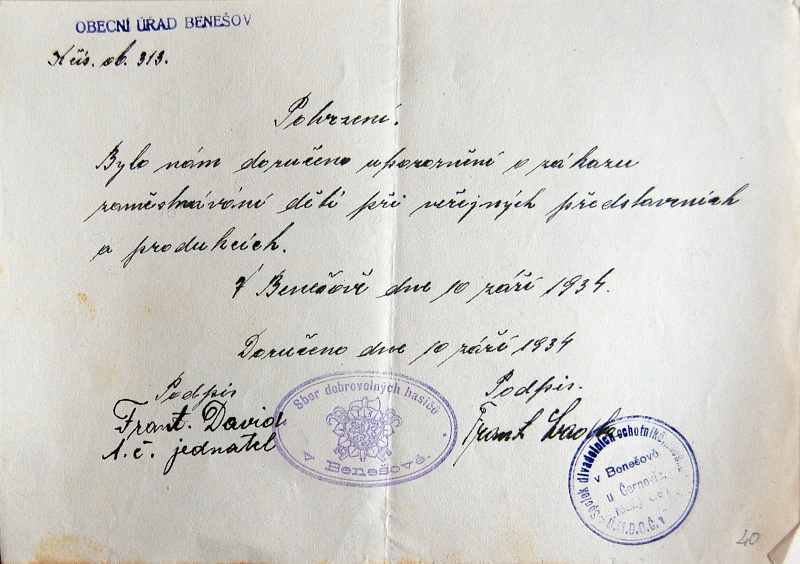 OBECNÍ ÚŘAD BENEŠOV
Křís. ob. 313.
Potvrzení.
Bylo nám doručeno upozornění o zákazu
zaměstnávání dětí při veřejných představeních
a produkcích.
V Benešově dne 10 září 1934.
Doručeno dne 10 září 1934
Podpis
Frant. David
t. č. jednatel
Sbor dobrovolných hasičů
v Benešově.
Podpis.
Frant
Spolek divadelních ochotníků
v Benešově
u Černovic
Ú.M.D.O.Č.
40